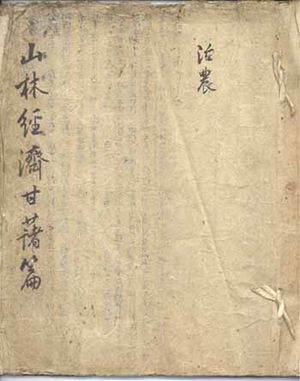 山林經濟甘藷篇
治農